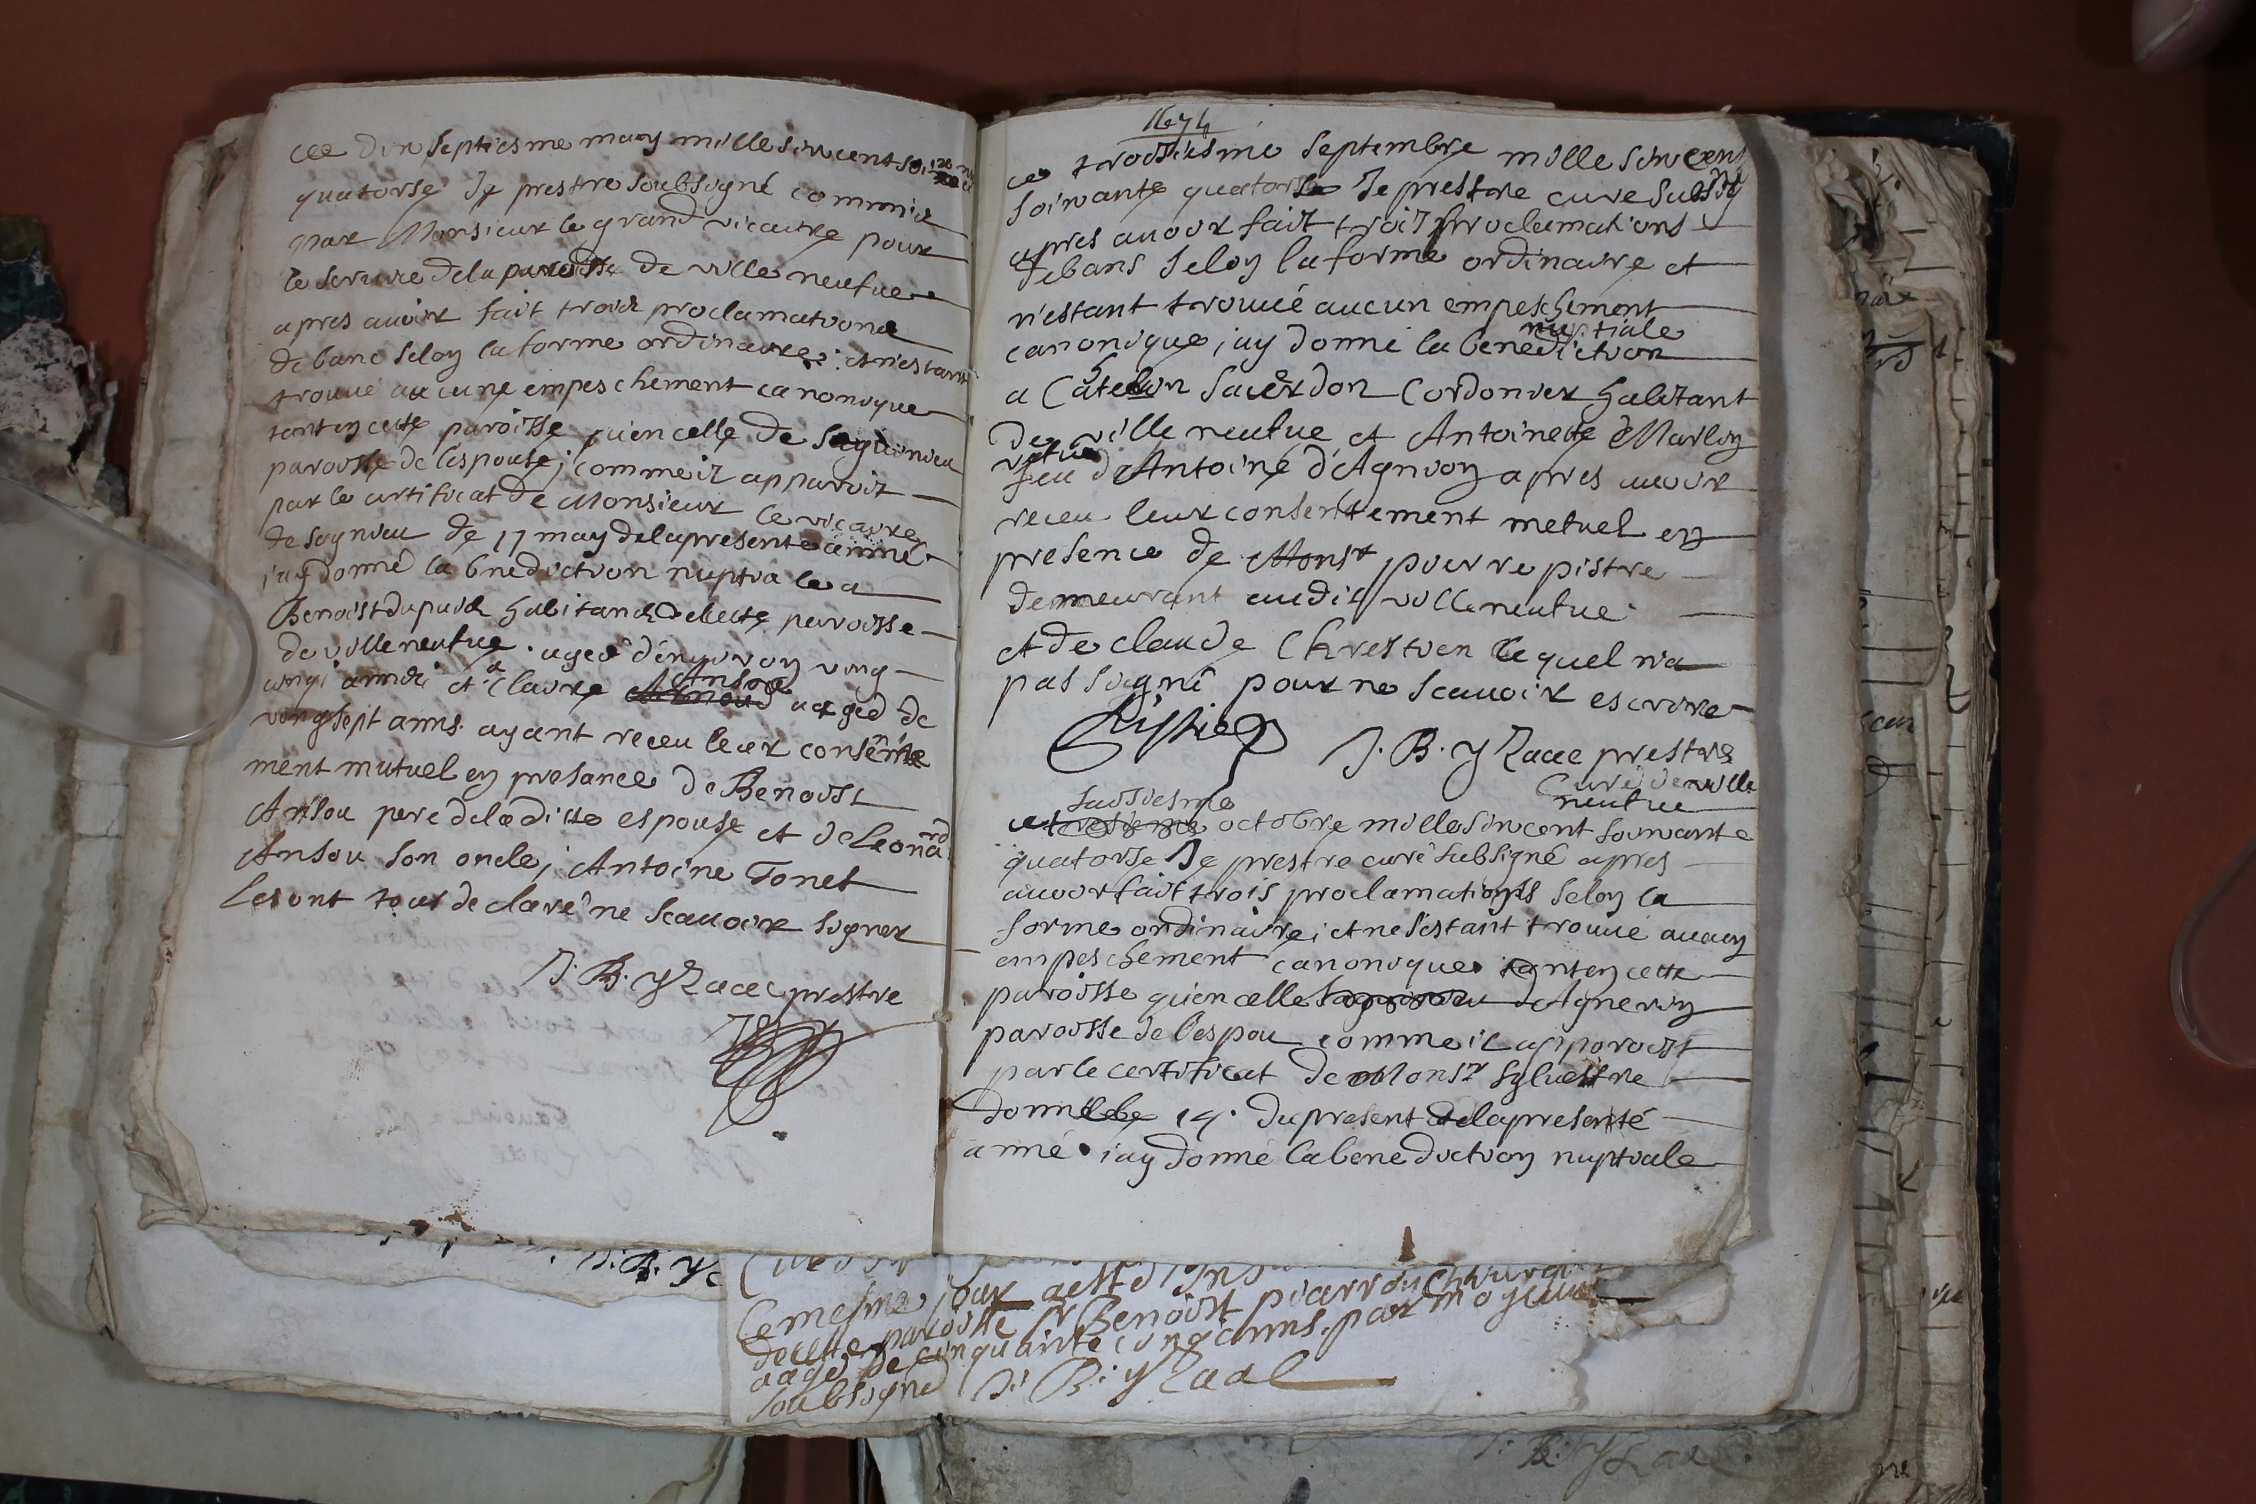 ce dix septiesme may mille sixcent soixante
quatorse Je prestre soubsigné commis
par Monsieur le grand vicaire pour
le service dela paroisse de ville neufue
apres auoir fait trois proclamations
de banc selon la forme ordinaire; et n'estant
trouué aucune empeschement canonique
tant en cette paroisse qu'en celle de
paroisse de l'espouse; comme il apparoit
par le certificat de Monsieur le vicaire
de 17 may dela presente anné
j'ay donné la bnediction nuptiale a
Benoist dupuis habitans de cette paroisse
de ville neufue. agee d'enuiron ving
et a Claire Ansou aageé de
vingsept anns. ayant receu leur consente
ment mutuel en presance de Benoist
Ansou pere de laditte espouse et de Leonard
Ansou son oncle; Antoine Tonet
Lesont tous declaré ne scauoir signer
J. B. yzaac prestre
1674
ce troisiesme Septembre mille sixcent
soixante quatorse Je prestre cure subsigné
apres auoir fait trois proclamations
de bans selon la forme ordinaire et
n'estant trouué aucun empeschement
canonique j'ay donné la benediction nuptiale
a Catelin sacerdon Cordonier habitant
de ville neufue et Antoinette Marlin
vefue feu d'Antoine d'Agnion apres auoir
receu leur consentement metuel en
presence de Monsr pierre pistre
demeurant audit villeneufue
et de claude Chrestien lequel n'a
pas signé pour ne scauoir escrire
J. B. yzaac prestre
Curé de ville
neufue
ce octobre mille sixcent soixante
quatorse Je prestre curé subsigné apres
auoir fait trois proclamations selon la
forme ordinaire; et ne s'estant trouué aucun
empeschement canonique tant en cette
paroisse qu'en celle d'Agnerin
paroisse de l'espou comme il apparoist
par le certificat de Monsr syluestre
donné le 14. du present dela presenté
anné. j'ay donné la benediction nuptiale
J. B. Y
Ce mesme jour a esté
de cette paroisse sr Benoist piarron Chirurg
aagé de cinquante cinq anns. par moy
soubsigné J. B. yzaac